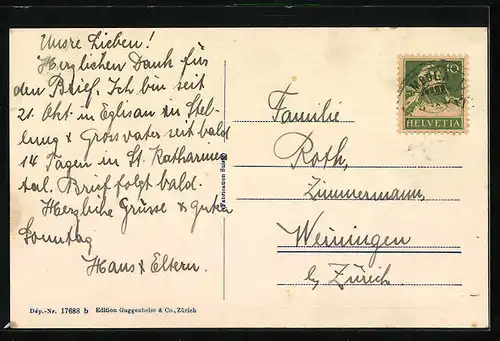 Unsre Lieben!
Herzlichen Dank für
den Brief. Ich bin seit
21. Okt. in Eglisau in Stel-
lung & Grossvater seit bald
14 Tagen in St. Katharina
tal. Brief folgt bald.
Herzliche Grüsse & guten
Sonntag
Hans & Eltern.
Familie
Roth,
Zimmermann,
Weiningen
b/ Zürich
10
HELVETIA
Dép.-Nr. 17688 b Edition Guggenheim & Co., Zürich